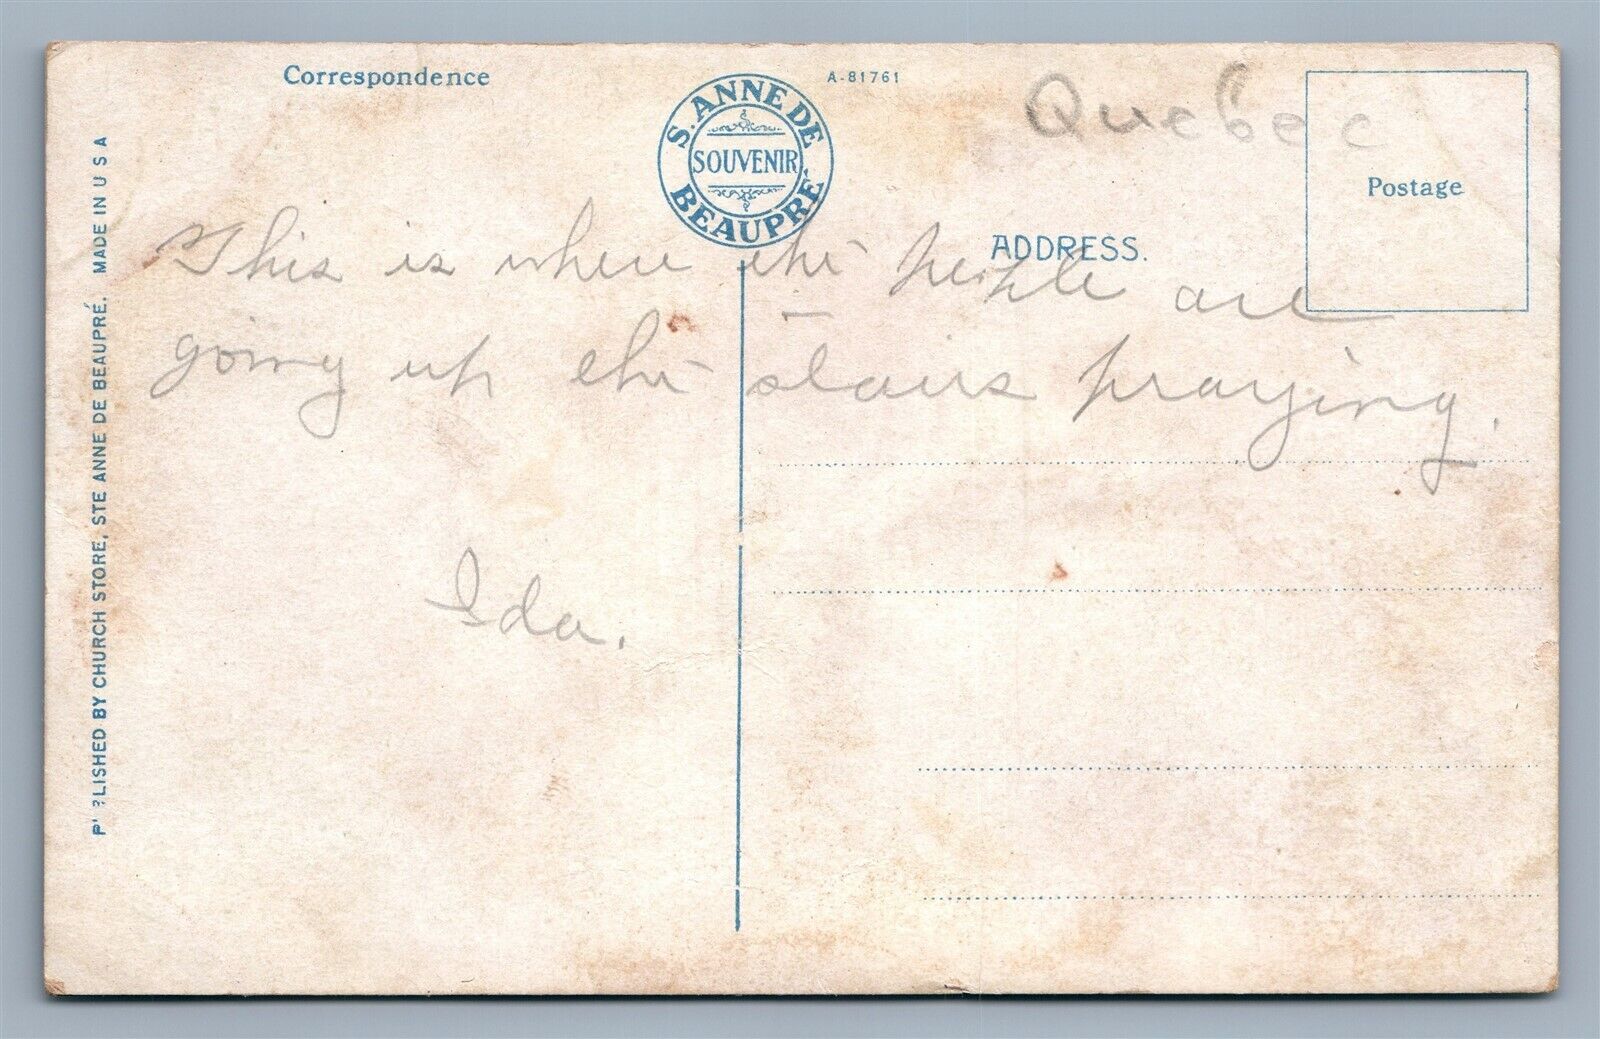 Correspondence
S. ANNE DE BEAUPRÉ
SOUVENIR
A-81761
Quebec
Postage
ADDRESS.
This is where the people are
going up the stairs praying.
Ida.
LISHED BY CHURCH STORE, STE ANNE DE BEAUPRÉ. MADE IN U S A